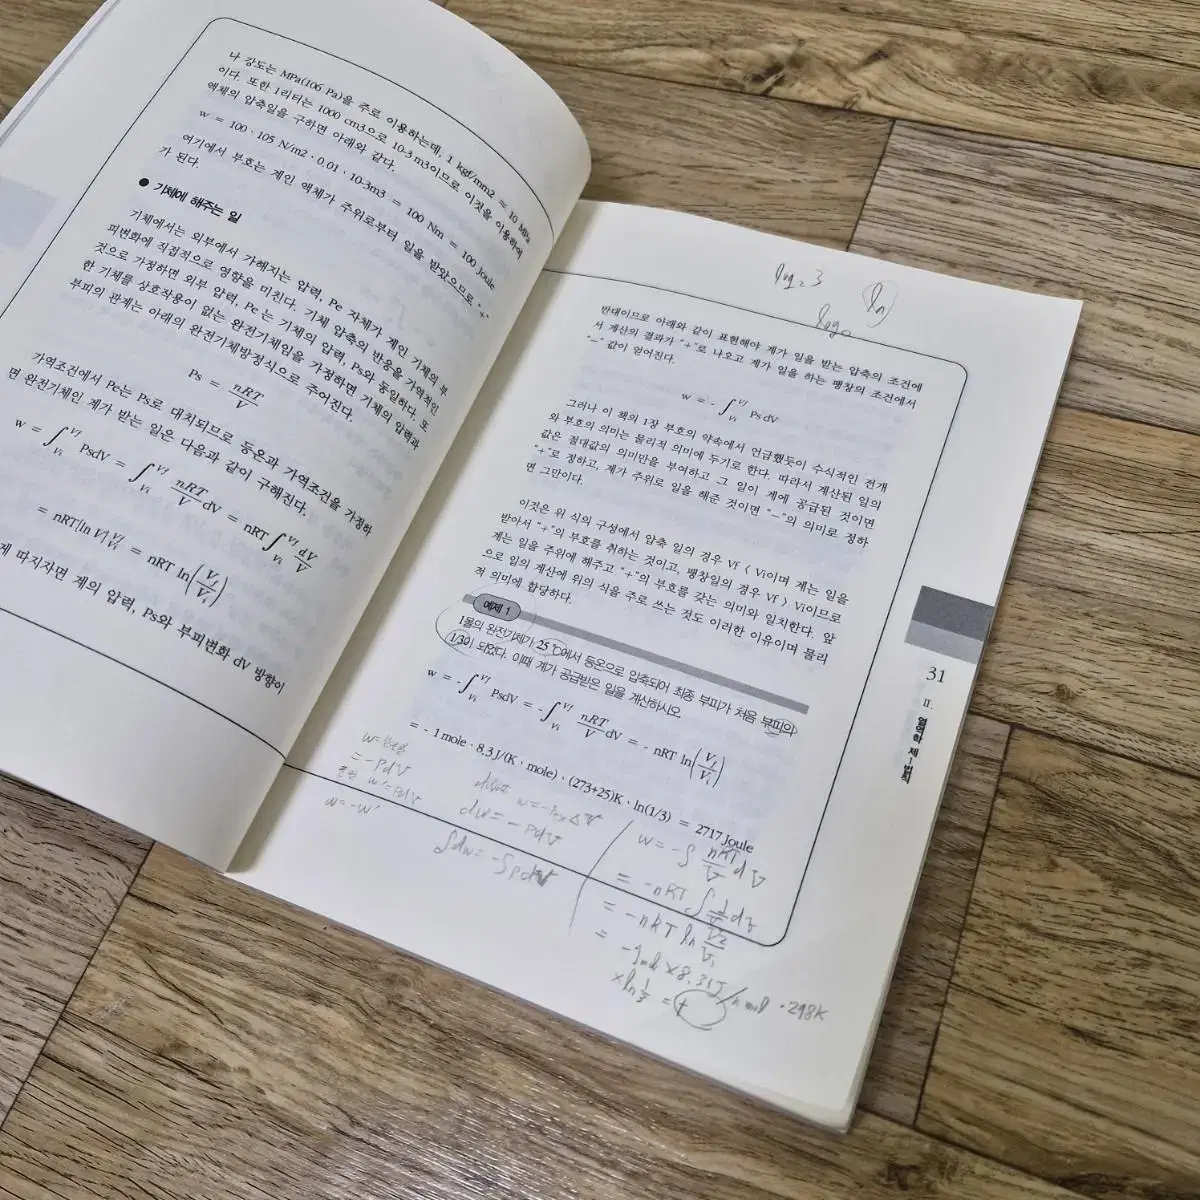 나 강도는 MPa(106 Pa)을 주로 이용하는데, 1 kgf/mm2 = 10 MPa
이다. 또한 1리터는 1000 cm3으로 10-3 m3이므로 이것을 이용하여
액체의 압축일을 구하면 아래와 같다.
w = 100 · 105 N/m2 · 0.01 · 10-3m3 = 100 Nm = 100 Joule
여기에서 부호는 계인 액체가 주위로부터 일을 받았으므로 "+"
가 된다.
● 기체에 해주는 일
기체에서는 외부에서 가해지는 압력, Pe 자체가 계인 기체의 부
피변화에 직접적으로 영향을 미친다. 기체 압축의 반응을 가역적인
것으로 가정하면 외부 압력, Pe는 기체의 압력, Ps와 동일하다. 또
한 기체를 상호작용이 없는 완전기체임을 가정하면 기체의 압력과
부피의 관계는 아래의 완전기체방정식으로 주어진다.
Ps = nRT/V
가역조건에서 Pe는 Ps로 대치되므로 등온과 가역조건을 가정하
면 완전기체인 계가 받는 일은 다음과 같이 구해진다.
w = ∫Vi Vf PsdV = ∫Vi Vf nRT/V dV = nRT∫Vi Vf dV/V
= nRT[ln V]Vf Vi = nRT ln(Vf/Vi)
게 따지자면 계의 압력, Ps와 부피변화 dV 방향이
log₂ 3 ln
log
반대이므로 아래와 같이 표현해야 계가 일을 받는 압축의 조건에
서 계산의 결과가 "+"로 나오고 계가 일을 하는 팽창의 조건에서
"−" 값이 얻어진다.
w = - ∫Vi Vf PsdV
그러나 이 책의 1장 부호의 약속에서 언급했듯이 수식적인 전개
와 부호의 의미는 물리적 의미에 두기로 한다. 따라서 계산된 일의
값은 절대값의 의미만을 부여하고 그 일이 계에 공급된 것이면
"+"로 정하고, 계가 주위로 일을 해준 것이면 "−"의 의미로 정하
면 그만이다.
이것은 위 식의 구성에서 압축 일의 경우 Vf < Vi이며 계는 일을
받아서 "+"의 부호를 취하는 것이고, 팽창일의 경우 Vf > Vi이므로
계는 일을 주위에 해주고 "+"의 부호를 갖는 의미와 일치한다. 앞
으로 일의 계산에 위의 식을 주로 쓰는 것도 이러한 이유이며 물리
적 의미에 합당하다.
예제 1
1몰의 완전기체가 25 ℃에서 등온으로 압축되어 최종 부피가 처음 부피의
1/3이 되었다. 이때 계가 공급받은 일을 계산하시오
w = -∫Vi Vf PsdV = -∫Vi Vf nRT/V dV = - nRT ln(Vf/Vi)
= - 1 mole · 8.3 J/(K · mole) · (273+25)K · ln(1/3) = 2717 Joule
= -PdV
w' = PdV
w = -w'
w = -Pex ΔV
dw = -PdV
∫dw = -∫PdV
w = -∫ nRT/V dV
= -nRT ∫ 1/V dV
= -nRT ln V2/V1
= -1mol × 8.31J/K mol · 298K
× ln 1/3 = +
31
II. 열역학 제1법칙